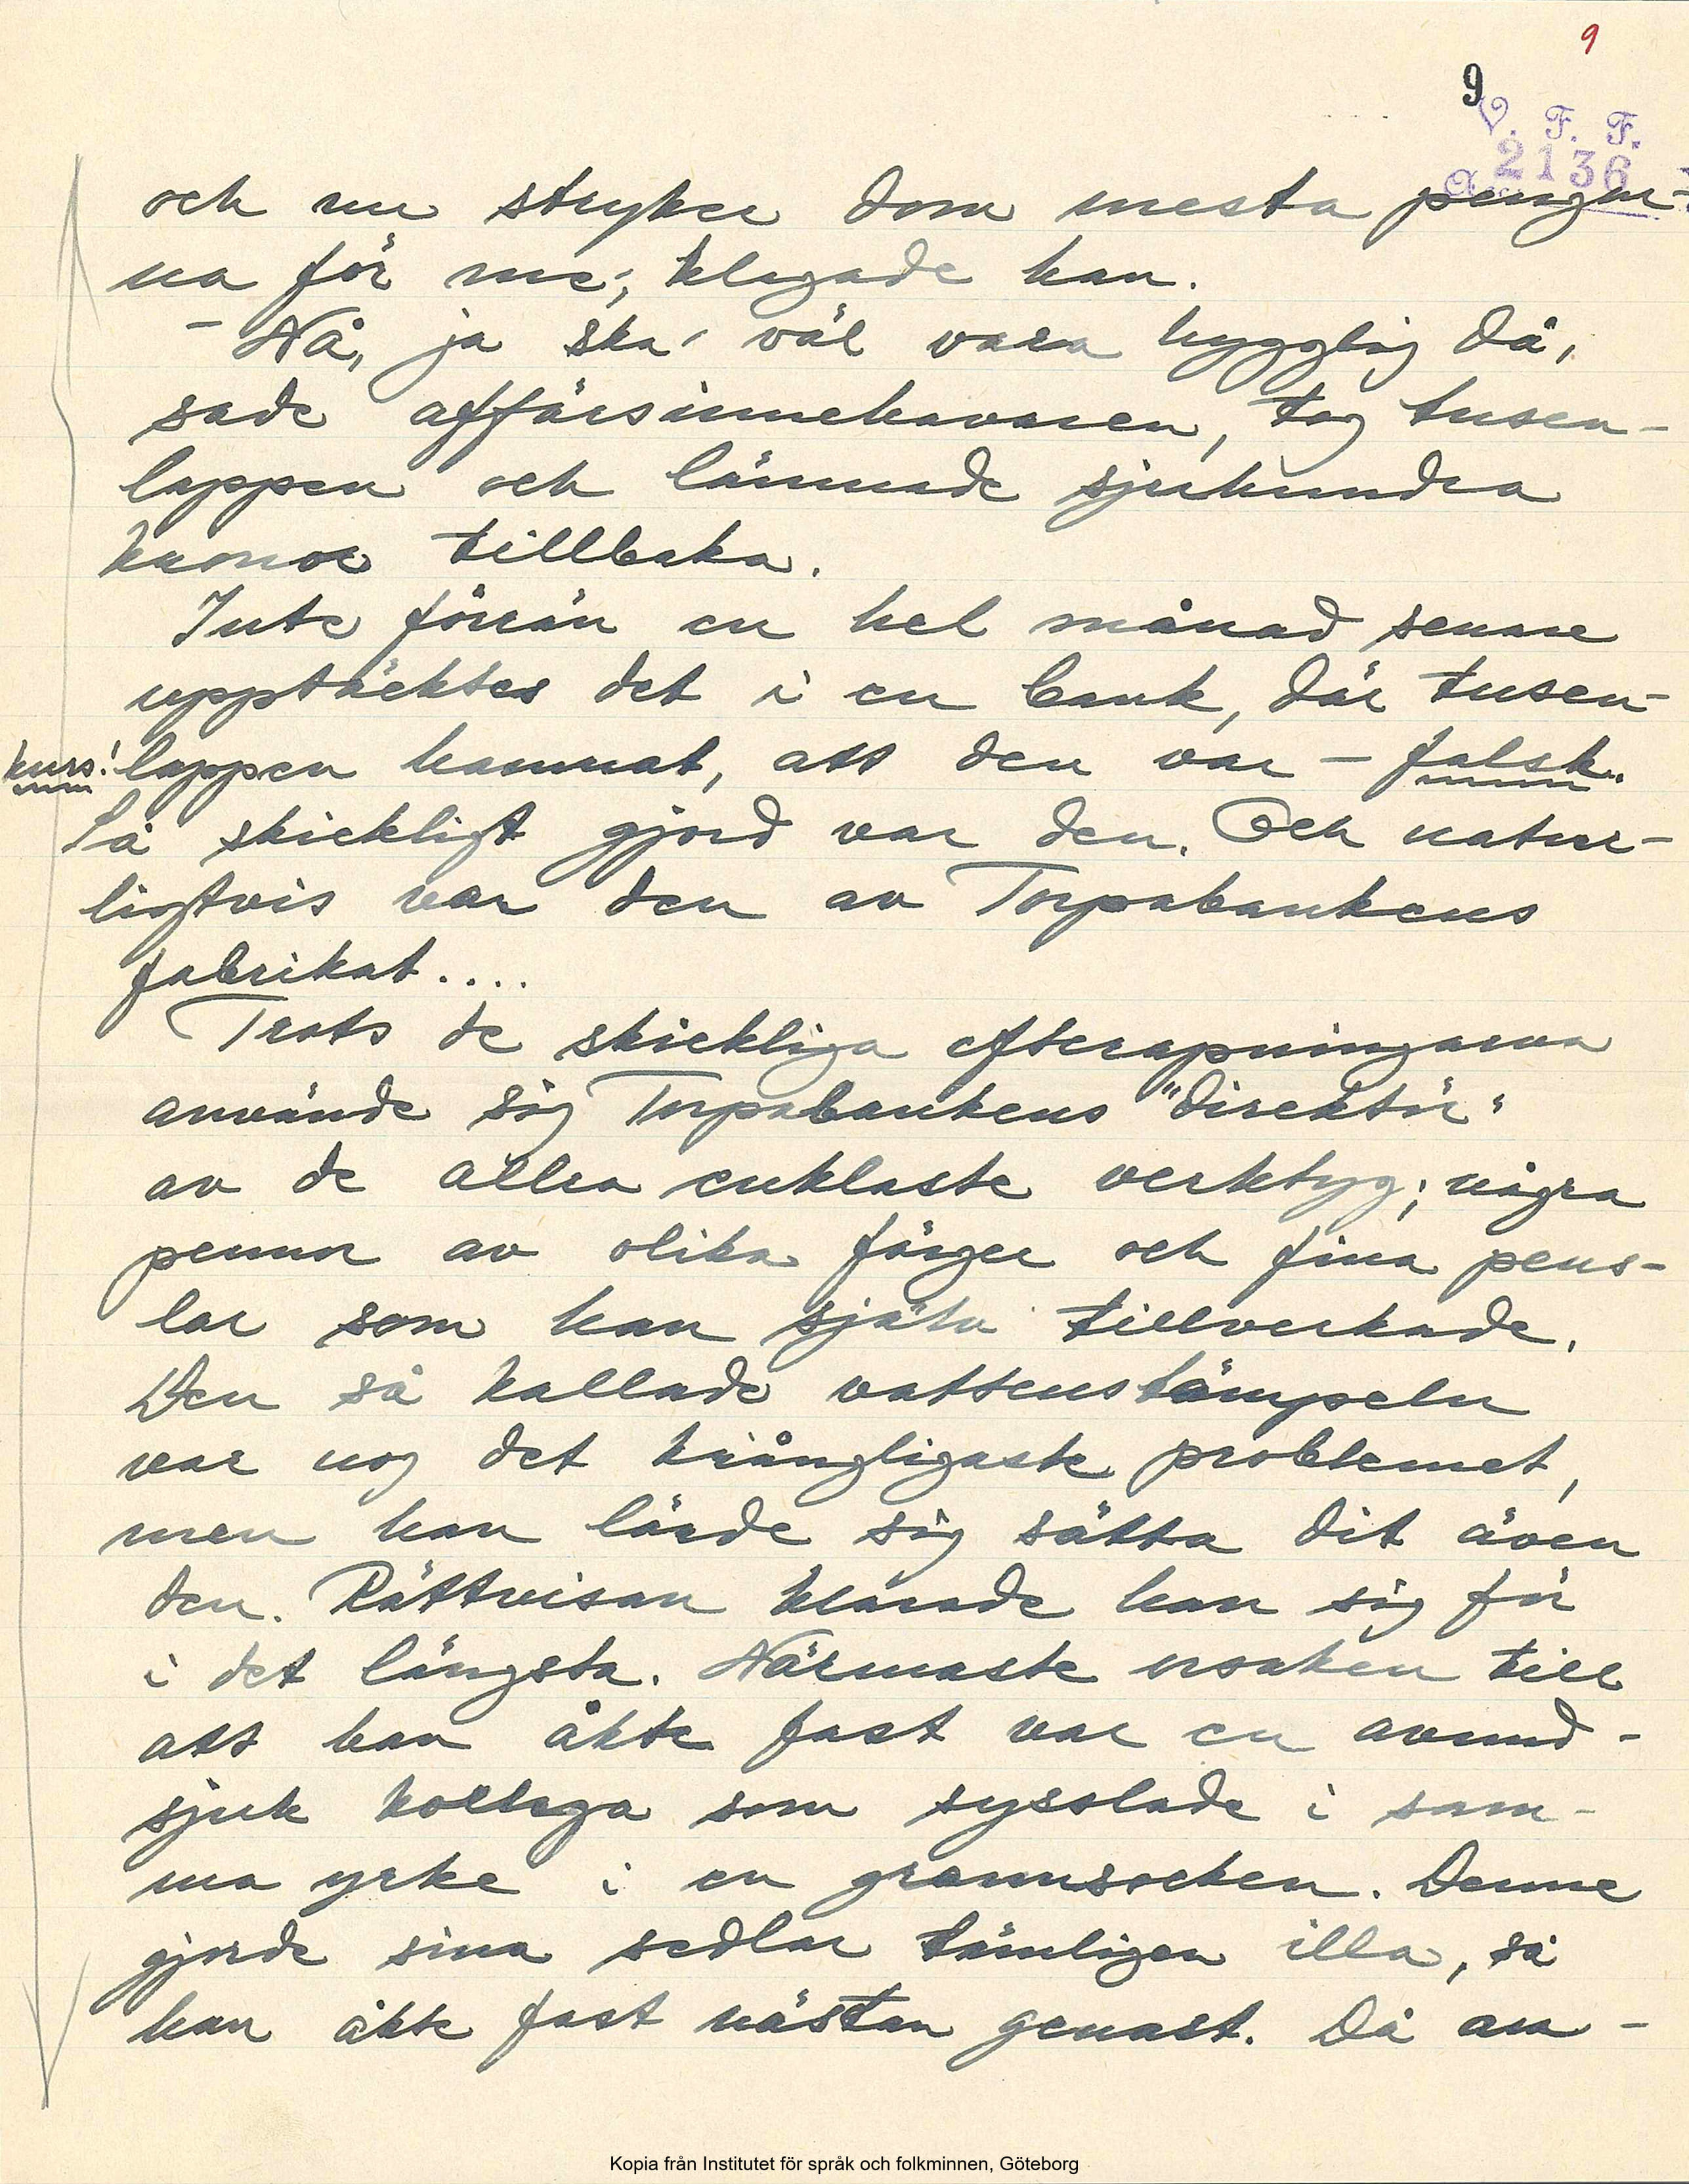 9
9
V. F. F.
2136
och nu stryker dom mesta pengar-
na för me; klagade han.
- Nå, ja ska' väl vara hygglig då,
sade affärsinnehavaren, tog tusen-
lappen och lämnade sjuhundra
kronor tillbaka.
Inte förrän en hel månad senare
upptäcktes det i en bank, där tusen-
kurs! lappen hamnat, att den var - falsk.
Så skickligt gjord var den. Och natur-
ligtvis var den av Torpabankens
fabrikat....
Trots de skickliga efterapningarna
använde sig Torpabankens "direktör"
av de allra enklaste verktyg; några
pennor av olika färger och fina pens-
lar som han själv tillverkade.
Den så kallade vattenstämpeln
var nog det krångligaste problemet,
men han lärde sig sätta dit även
den. Rättvisan klarade han sig för
i det längsta. Närmaste orsaken till
att han åkte fast var en avund-
sjuk kollega som sysslade i sam-
ma yrke i en grannsocken. Denne
gjorde sina sedlar tämligen illa, så
han åkte fast nästan genast. Då an-
Kopia från Institutet för språk och folkminnen, Göteborg